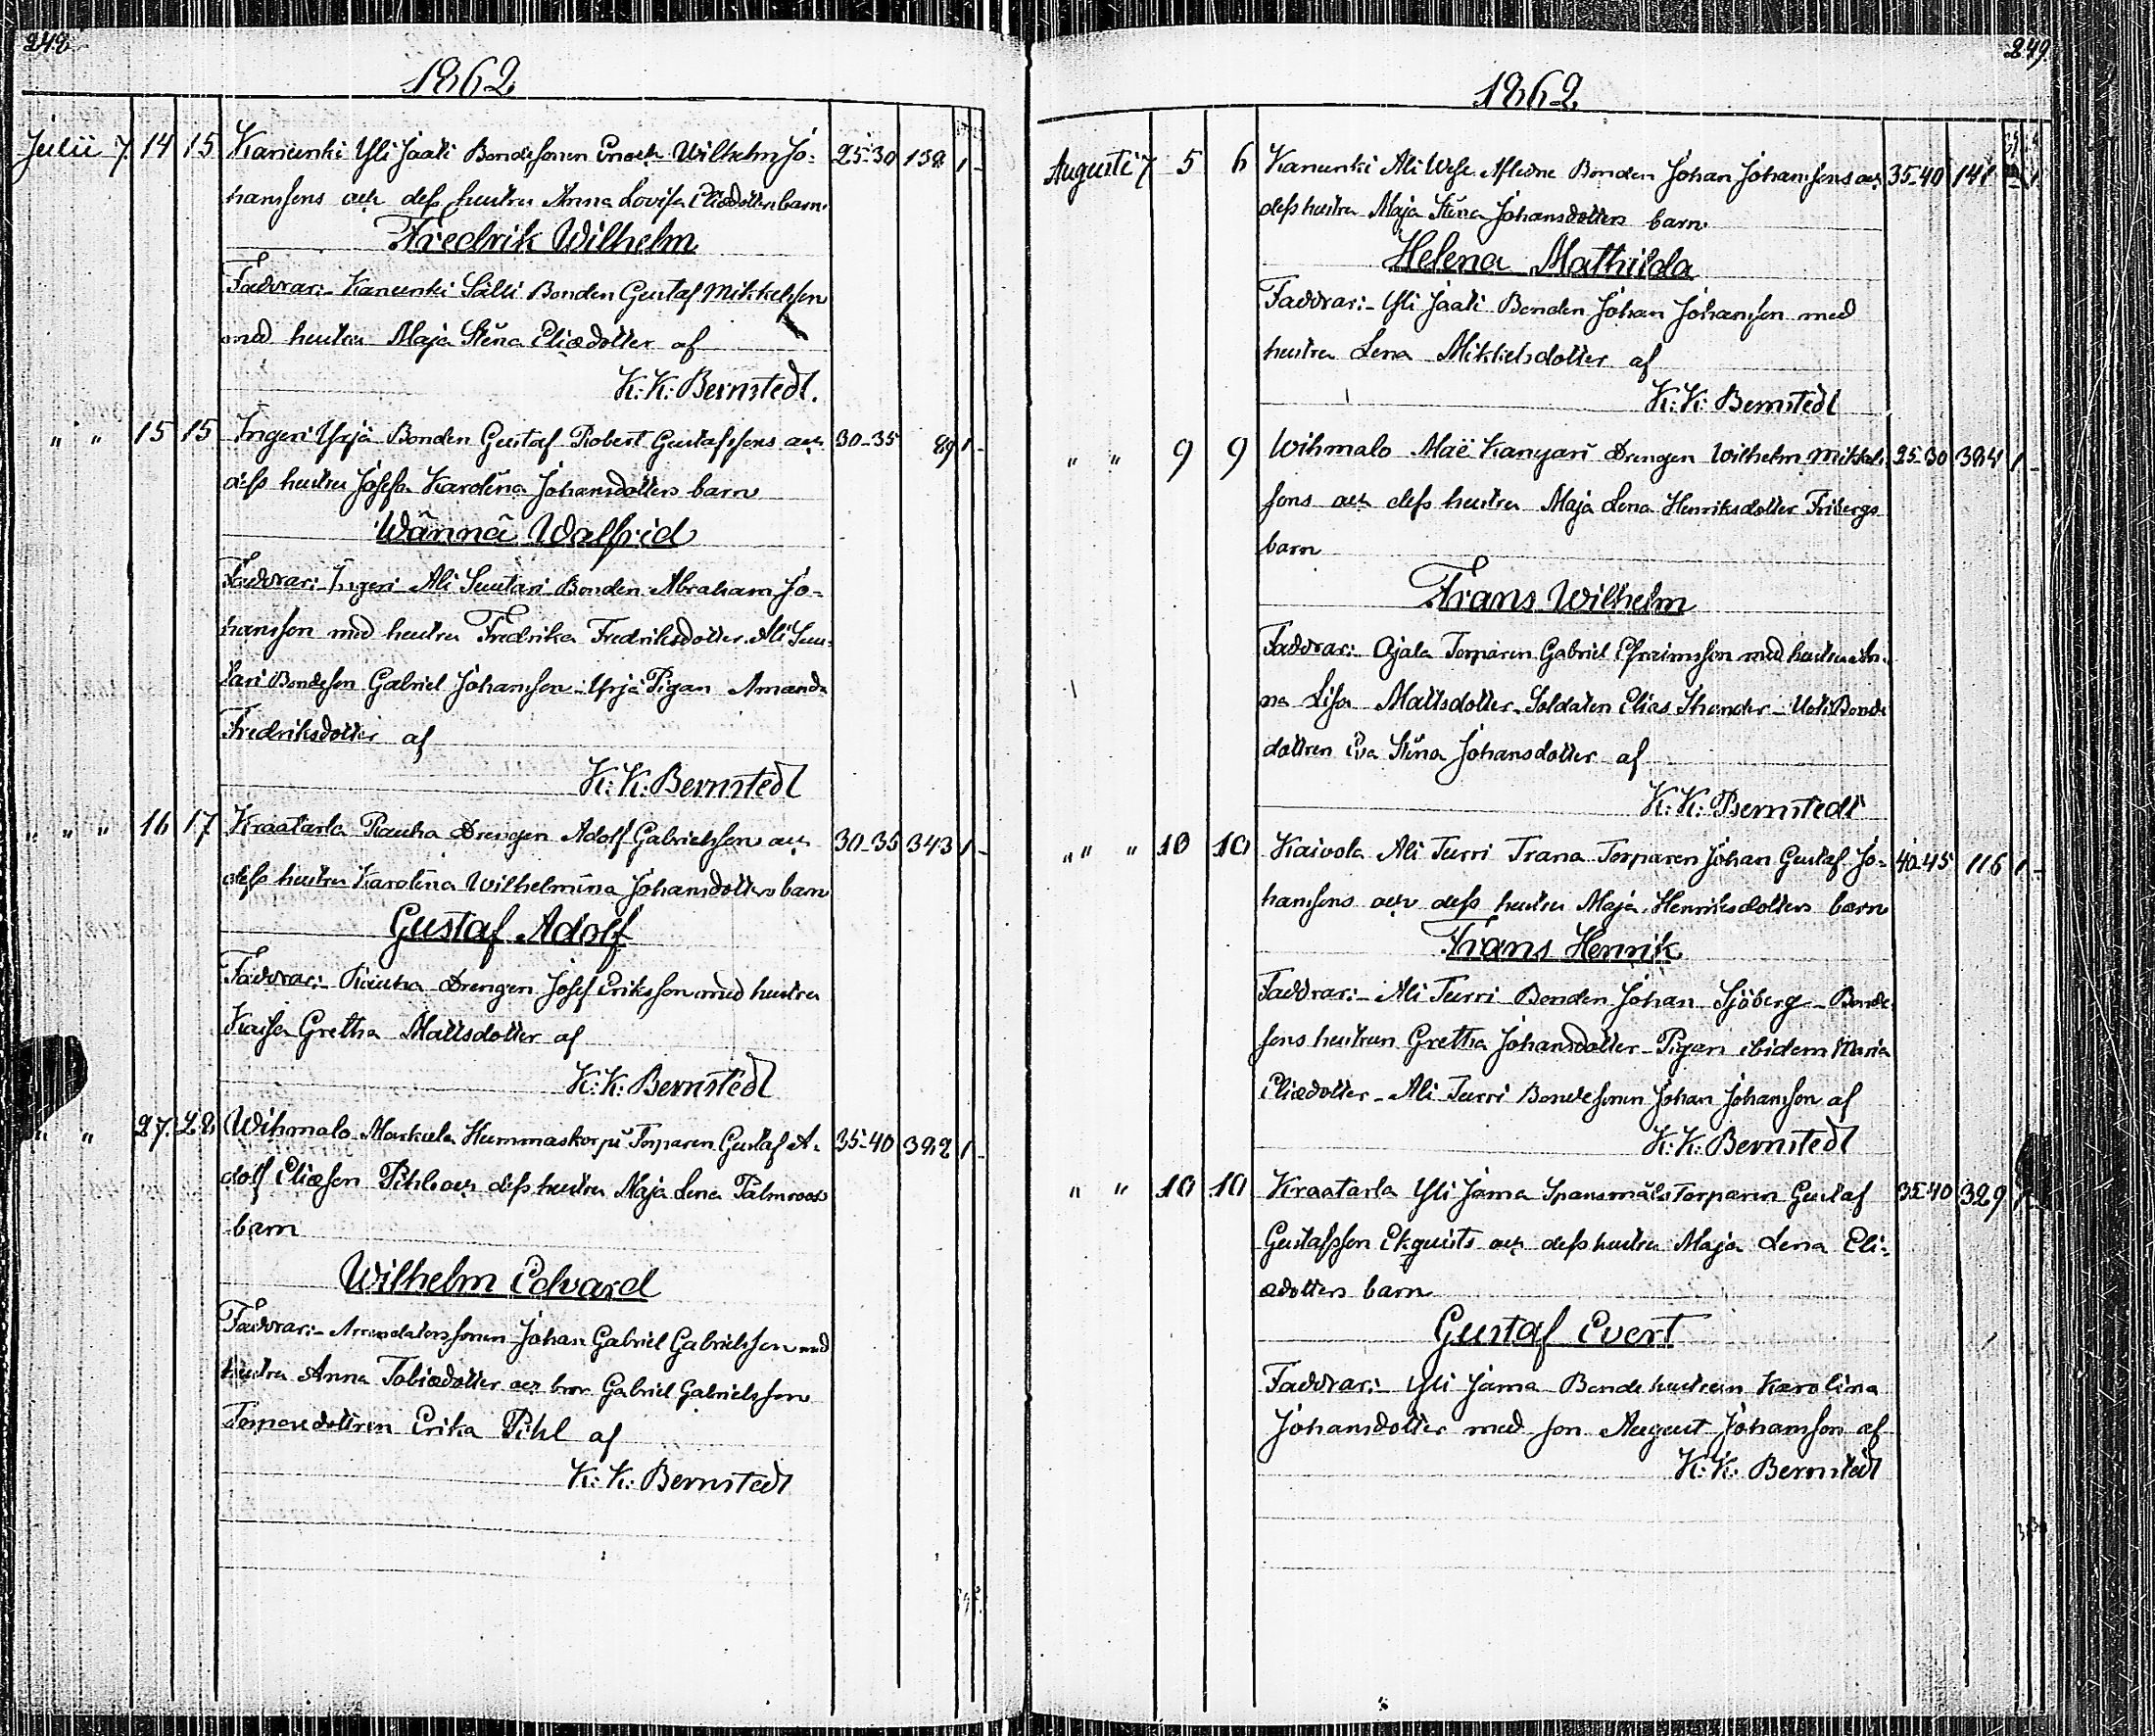 248
1862
Julii 7 14 15 Kanunki Yli Jaali Bondesonen Enoch Wilhelm Jo- 25-30 138 1 -
hanssons och dess hustru Anna Lovisa Eliædotters barn
Fredrik Wilhelm
Faddrar:- Kanunki Sälli Bonden Gustaf Mikkelsson
med hustru Maja Stina Eliædotter af
K: K: Bernstedt.
" " 15 15 Ingeri Yrjä Bonden Gustaf Robert Gustafssons och 30-35 89 1 -
dess hustru Josefa Karolina Johansdotters barn
Wännä Walfrid
Faddrar:- Ingeri Ali Suutari Bonden Abraham Jo-
hansson med hustru Fredrika Fredriksdotter. Ali Suu-
tari Bondeson Gabriel Johansson - Yrjä Pigan Amanda
Fredriksdotter af
K: K: Bernstedt
" " " 16 17 Kraatarla Rauha Drengen Adolf Gabrielsson och 30-35 343 1 -
dess hustru Karolina Wilhelmina Johansdotters barn
Gustaf Adolf
Faddrar:- Rauha Drengen Josef Eriksson med hustru
Kaisa Gretha Mattsdotter af
K: K: Bernstedt
" " 27 28 Wihmalo Markula Hummaskorpi Torparen Gustaf A- 35-40 392 1 -
dolf Eliæson Pihl och dess hustru Maja Lena Palmroos
barn
Wilhelm Edvard
Faddrar:- Arrendatorssonen Johan Gabriel Gabrielsson med
hustru Anna Tobiædotter och bror Gabriel Gabrielsson
Torparedottren Erika Pihl af
K: K: Bernstedt
249.
1862
Augusti 7 5 6 Kanunki Ali Wese Afledne Bonden Johan Johanssons och 35-40 141 1
dess hustru Maja Stina Johansdotters barn
Helena Mathilda
Faddrar:- Yli Jaali Bonden Johan Johansson med
hustru Lena Mikkelsdotter af
K: K: Bernstedt
" " 9 9 Wihmalo Maë Kangari Drengen Wilhelm Mikkels- 25-30 384 1 -
sons och dess hustru Maja Lena Henriksdotter Fribergs
barn
Frans Wilhelm
Faddrar:- Ojala Torparen Gabriel Efraimsson med hustru An-
na Lisa Mattsdotter. Soldaten Elias - Uoti Bonde
dottren Eva Stina Johansdotter af
K: K: Bernstedt
" " " 10 10 Kaivola Ali Turri Trana Torparen Johan Gustaf Jo- 40-45 116 1 -
hanssons och dess hustru Maja Henriksdotters barn
Frans Henrik
Faddrar:- Ali Turri Bonden Johan Sjöberg - Bonde-
sons hustrun Gretha Johansdotter - Pigan ibidem Maria
Eliædotter - Ali Turri Bondesonen Johan Johansson af
K: K: Bernstedt
" " 10 10 Kraatarla Yli Jama Spansmäls Torparen Gustaf 35-40 329 1 -
Gustafsson Ekquists och dess hustru Maja Lena Eli-
ædotters barn
Gustaf Evert
Faddrar:- Yli Jama Bonde hustrun Karolina
Johansdotter med son August Johansson af
K: K: Bernstedt